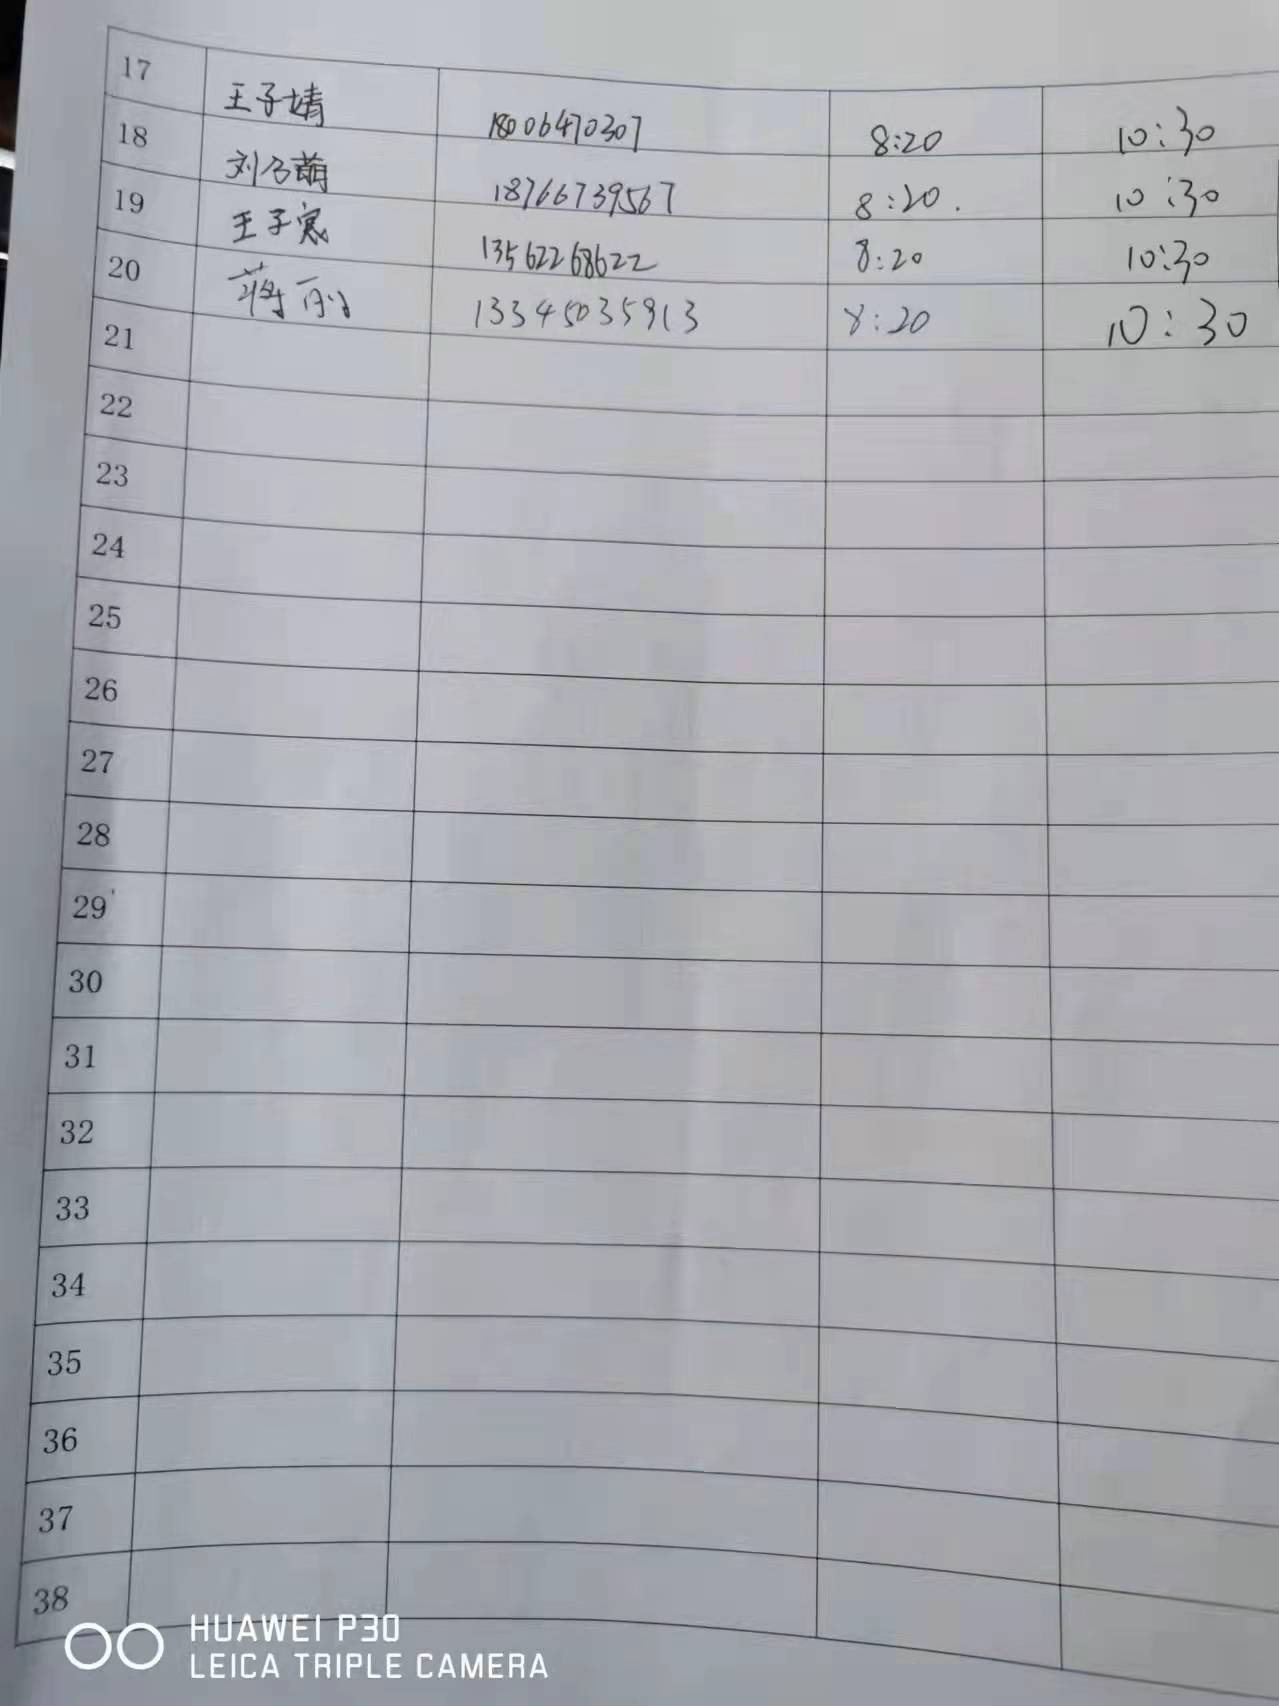 17 王子婧 18006470307 8:20 10:30
18 刘乃萌 18766739567 8:20. 10:30
19 王子寒 13562268622 8:20 10:30
20 蒋 13345035913 8:20 10:30
21
22
23
24
25
26
27
28
29
30
31
32
33
34
35
36
37
38
HUAWEI P30
LEICA TRIPLE CAMERA